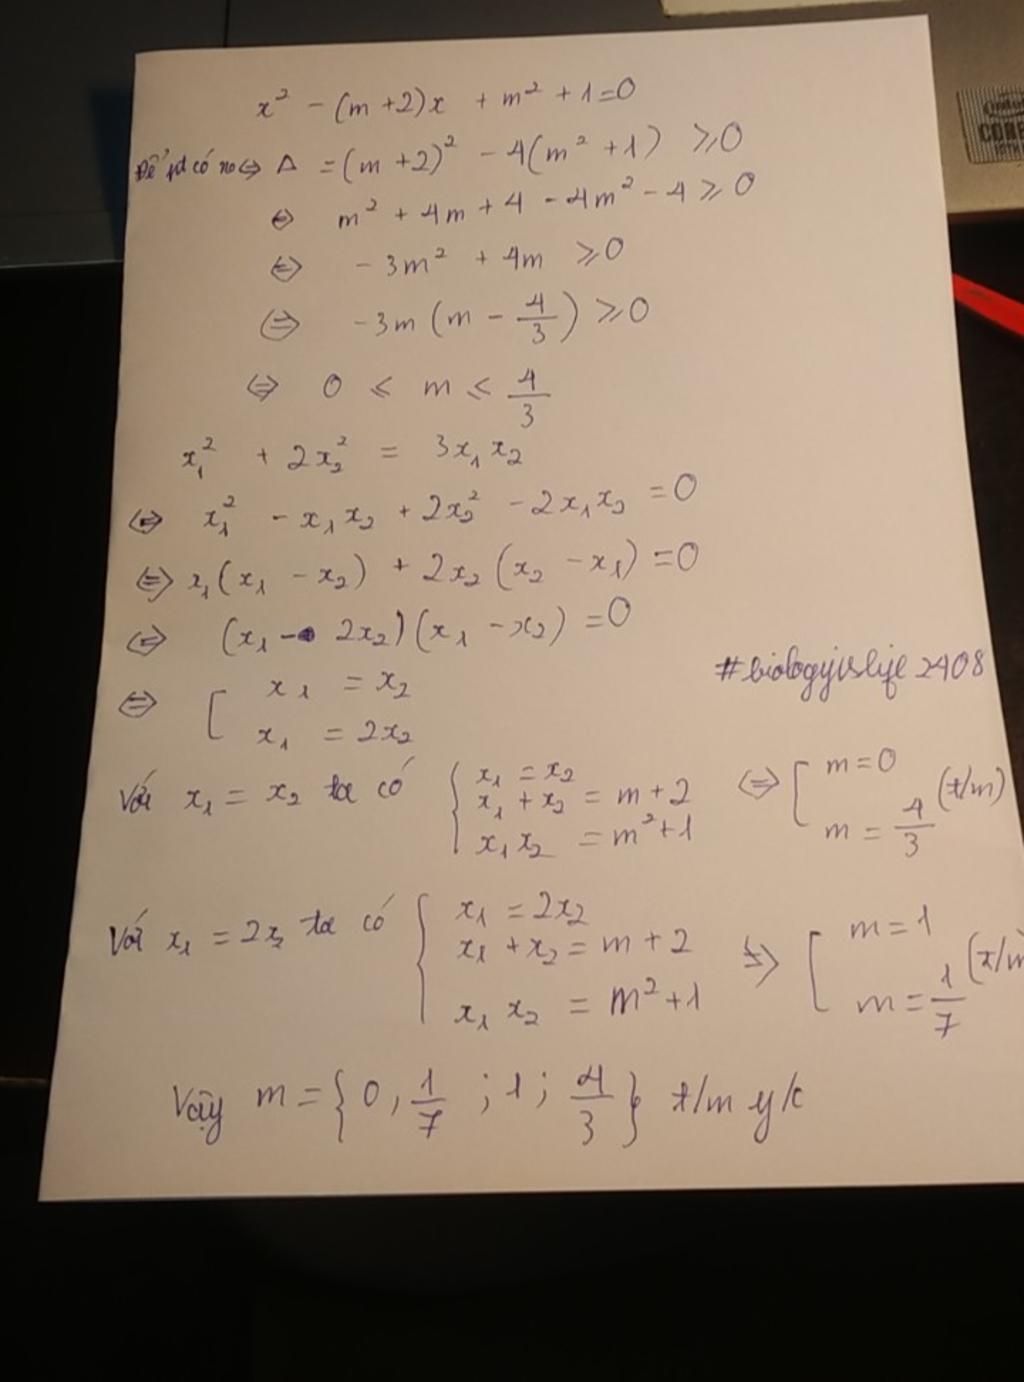 x² - (m+2)x + m² + 1 = 0
Để pt có no ⇔ Δ = (m+2)² - 4(m²+1) ⩾ 0
⇔ m² + 4m + 4 - 4m² - 4 ⩾ 0
⇔ -3m² + 4m ⩾ 0
⇔ -3m(m - 4/3) ⩾ 0
⇔ 0 ⩽ m ⩽ 4/3
x₁² + 2x₂² = 3x₁x₂
⇔ x₁² - x₁x₂ + 2x₂² - 2x₁x₂ = 0
⇔ x₁(x₁ - x₂) + 2x₂(x₂ - x₁) = 0
⇔ (x₁ - 2x₂)(x₁ - x₂) = 0
#biologyislife2408
⇔ [ x₁ = x₂
x₁ = 2x₂
Với x₁ = x₂ ta có { x₁ = x₂
x₁ + x₂ = m + 2
x₁x₂ = m² + 1
⇔ [ m = 0
m = 4/3 (t/m)
Với x₁ = 2x₂ ta có { x₁ = 2x₂
x₁ + x₂ = m + 2
x₁x₂ = m² + 1
⇔ [ m = 1
m = 1/7 (t/m
Vậy m = {0, 1/7 ; 1 ; 4/3} t/m y/c